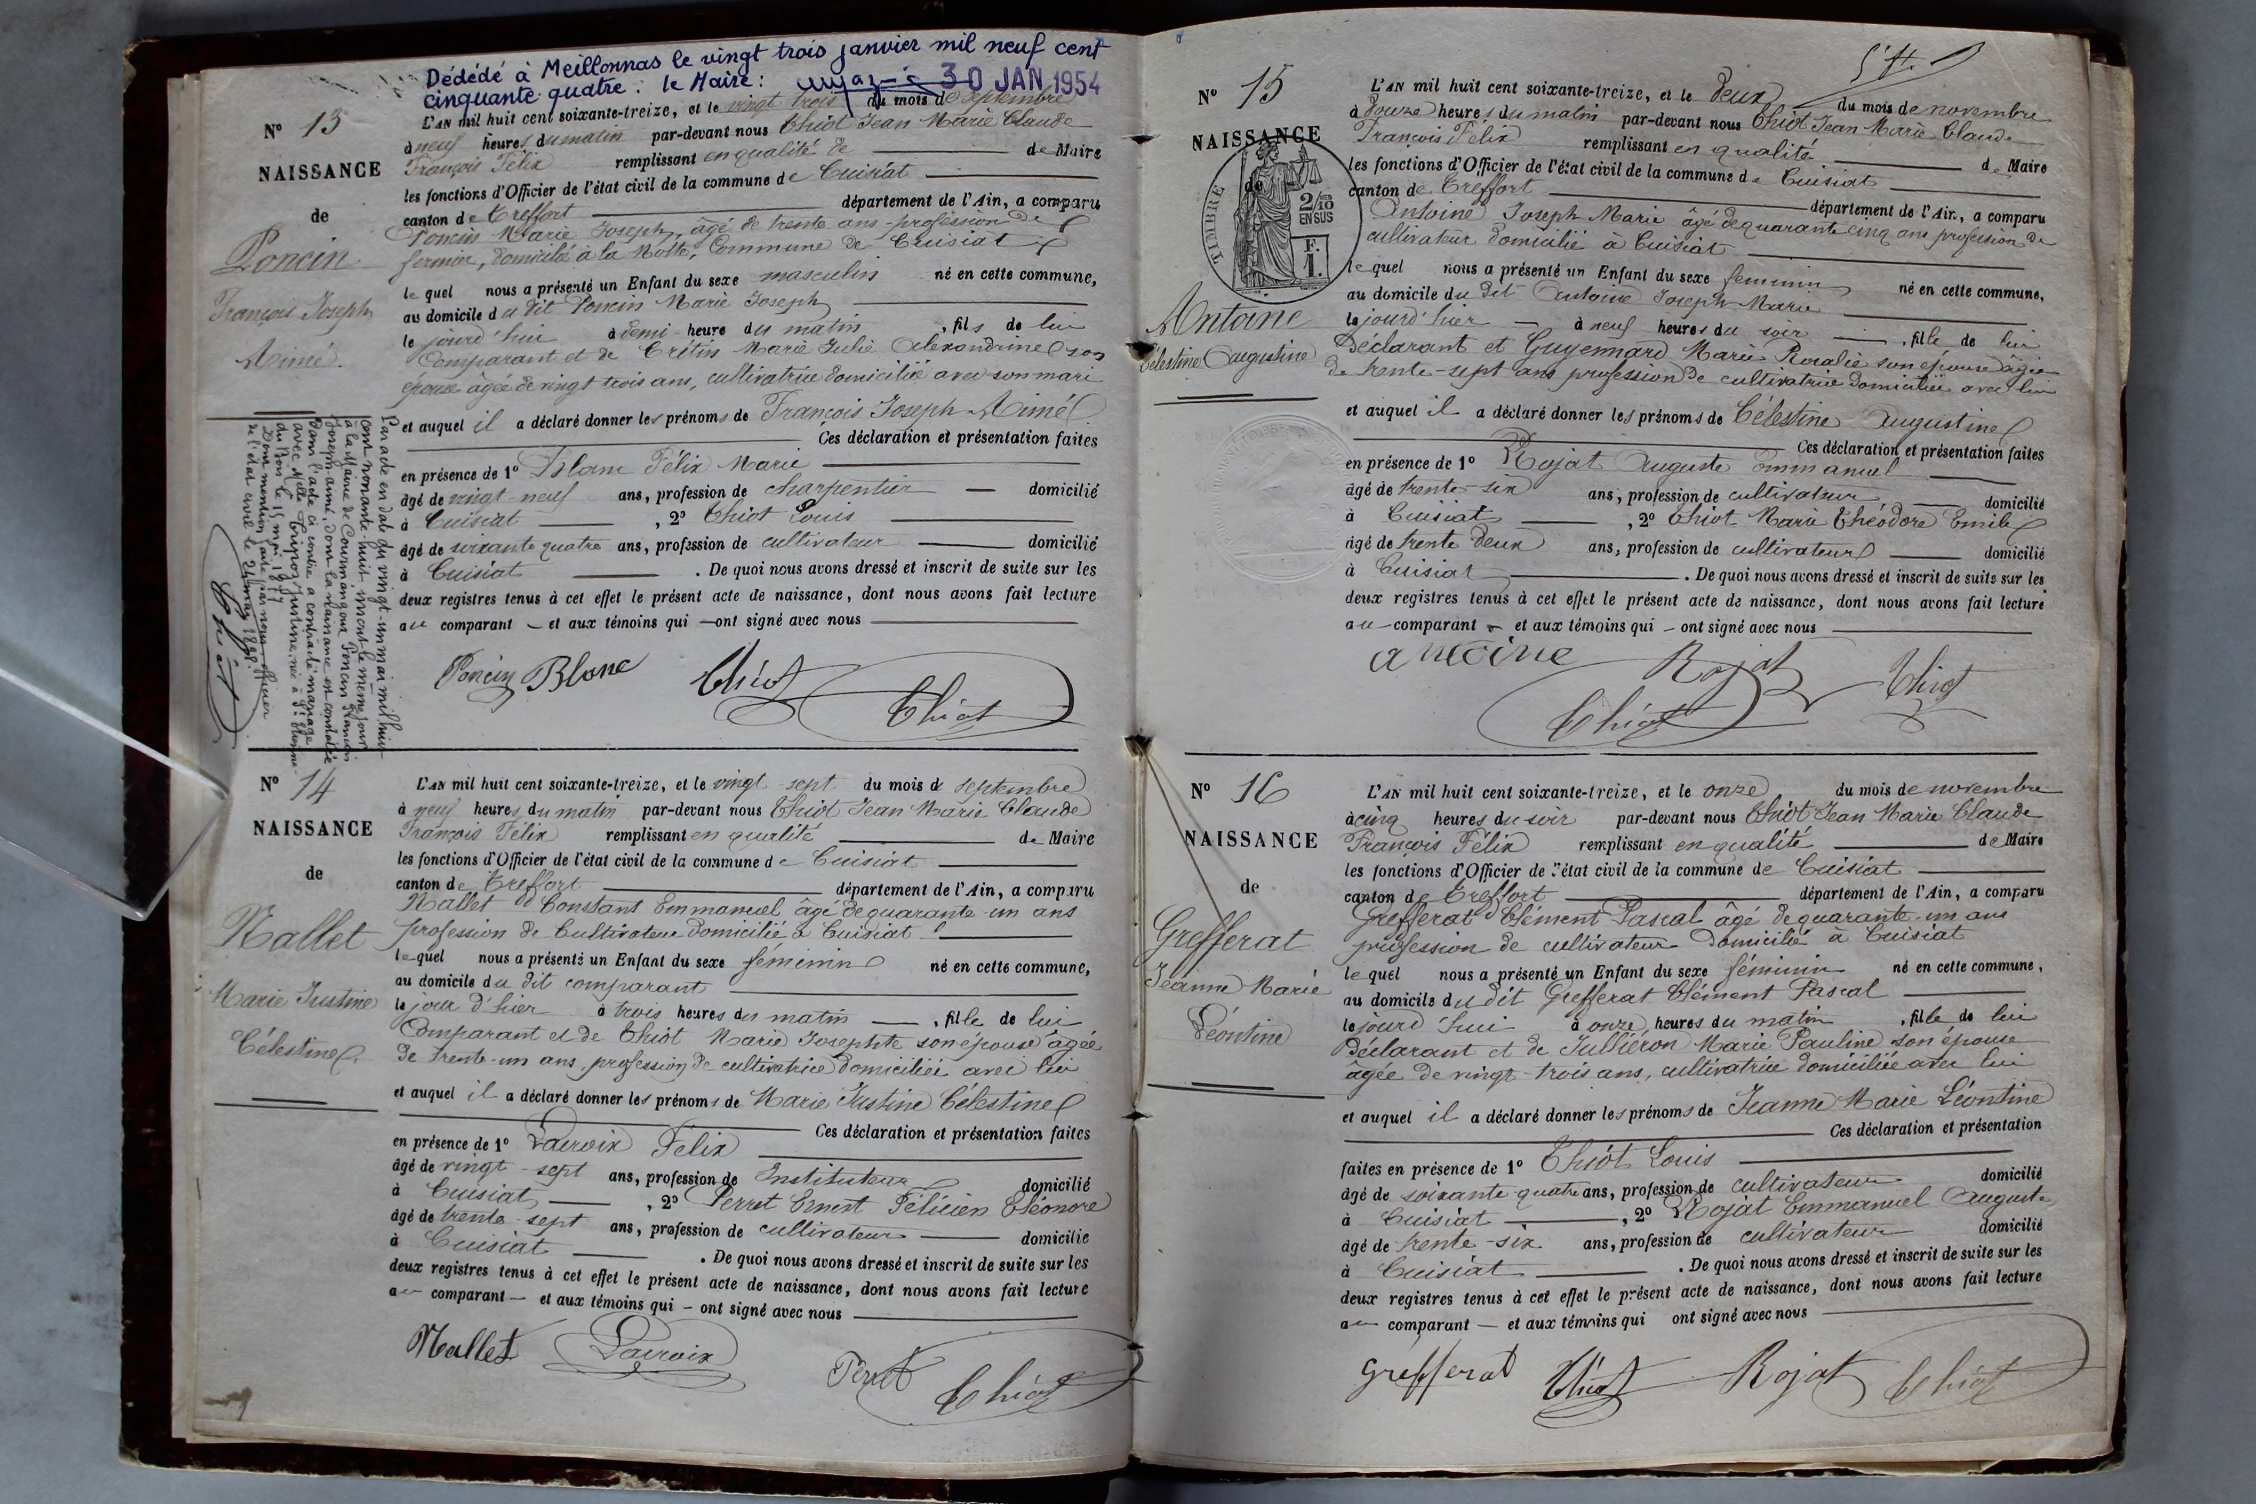 Dédédé à Meillonnas le vingt trois janvier mil neuf cent
cinquante quatre : le Maire :
30 JAN 1954
N° 13
NAISSANCE
de
Poncin
François Joseph
Aimé.
L'AN mil huit cent soixante-treize, et le vingt trois du mois de septembre
à neuf heures du matin par-devant nous Chiot Jean Marie Claude
François Félix remplissant en qualité de de Maire
les fonctions d'Officier de l'état civil de la commune de Cuisiat
canton de Treffort département de l'Ain, a comparu
Poncin Marie Joseph, âgé de trente ans profession de
fermier, domicilié à la Motte, Commune de Cuisiat
le quel nous a présenté un Enfant du sexe masculin né en cette commune,
au domicile du dit Poncin Marie Joseph
le jourd'hui à demi heure du matin , fils de lui
Comparant et de Crétin Marie Julie Alexandrine son
épouse âgée de vingt trois ans, cultivatrice domiciliée avec son mari
et auquel il a déclaré donner les prénoms de François Joseph Aimé
Ces déclaration et présentation faites
en présence de 1° Blanc Félix Marie
âgé de vingt-neuf ans, profession de charpentier domicilié
à Cuisiat , 2° Chiot Louis
âgé de soixante quatre ans, profession de cultivateur domicilié
à Cuisiat . De quoi nous avons dressé et inscrit de suite sur les
deux registres tenus à cet effet le présent acte de naissance, dont nous avons fait lecture
au comparant et aux témoins qui ont signé avec nous
Poncin Blanc Chiot
Chiot
Par acte en date du vingt-un mai mil huit
cent nonante huit inscrit le même jour
à la Mairie de Courmangoux Poncin François
Joseph aimé, dont la naissance est constatée
dans l'acte ci contre a contracté mariage
avec Melle Tripoz Justine, née à St Etienne
du Bois le 15 mai 1877
Dont mention faite par nous officier
de l'état civil le 24 mai 1898.
Chiot
N° 14
NAISSANCE
de
Mallet
Marie Justine
Célestine
L'AN mil huit cent soixante-treize, et le vingt sept du mois de septembre
à neuf heures du matin par-devant nous Chiot Jean Marie Claude
François Félix remplissant en qualité de Maire
les fonctions d'Officier de l'état civil de la commune de Cuisiat
canton de Treffort département de l'Ain, a comparu
Mallet Constant Emmanuel âgé de quarante un ans
profession de Cultivateur domicilié à Cuisiat
le quel nous a présenté un Enfant du sexe féminin né en cette commune,
au domicile du dit comparant
le jour d'hier à trois heures du matin , fille de lui
Comparant et de Chiot Marie Josephte son épouse âgée
de trente-un ans, profession de cultivatrice domiciliée avec lui
et auquel il a déclaré donner les prénoms de Marie Justine Célestine
Ces déclaration et présentation faites
en présence de 1° Lacroix Félix
âgé de vingt-sept ans, profession de Instituteur domicilié
à Cuisiat , 2° Perret Ernest Félicien Eléonore
âgé de trente-sept ans, profession de cultivateur domicilié
à Cuisiat . De quoi nous avons dressé et inscrit de suite sur les
deux registres tenus à cet effet le présent acte de naissance, dont nous avons fait lecture
au comparant et aux témoins qui ont signé avec nous
Mallet Lacroix
Perret Chiot
N° 15
NAISSANCE
de
TIMBRE
2/10 EN SUS
F. 1.
Antoine
Célestine Augustine
L'AN mil huit cent soixante-treize, et le deux du mois de novembre
à douze heures du matin par-devant nous Chiot Jean Marie Claude
François Félix remplissant en qualité de Maire
les fonctions d'Officier de l'état civil de la commune de Cuisiat
canton de Treffort département de l'Ain, a comparu
Antoine Joseph Marie âgé de quarante cinq ans profession de
cultivateur domicilié à Cuisiat
le quel nous a présenté un Enfant du sexe féminin né en cette commune,
au domicile du dit Antoine Joseph Marie
le jourd'hier à neuf heures du soir , fille de lui
Déclarant et Guyennard Marie Rosalie son épouse âgée
de trente-sept ans profession de cultivatrice domiciliée avec lui
et auquel il a déclaré donner les prénoms de Célestine Augustine
Ces déclaration et présentation faites
en présence de 1° Rojat Auguste Emmanuel
âgé de trente-six ans, profession de cultivateur domicilié
à Cuisiat , 2° Chiot Marie Théodore Emile
âgé de trente deux ans, profession de cultivateur domicilié
à Cuisiat . De quoi nous avons dressé et inscrit de suite sur les
deux registres tenus à cet effet le présent acte de naissance, dont nous avons fait lecture
au comparant et aux témoins qui ont signé avec nous
antoine Rojat Chiot
Chiot
N° 16
NAISSANCE
de
Grefferat
Jeanne Marie
Léontine
L'AN mil huit cent soixante-treize, et le onze du mois de novembre
à cinq heures du soir par-devant nous Chiot Jean Marie Claude
François Félix remplissant en qualité de Maire
les fonctions d'Officier de l'état civil de la commune de Cuisiat
canton de Treffort département de l'Ain, a comparu
Grefferat Clément Pascal âgé de quarante un ans
profession de cultivateur domicilié à Cuisiat
le quel nous a présenté un Enfant du sexe féminin né en cette commune,
au domicile du dit Grefferat Clément Pascal
le jourd'hui à onze heures du matin , fille de lui
Déclarant et de Julliéron Marie Pauline son épouse
âgée de vingt-trois ans, cultivatrice domiciliée avec lui
et auquel il a déclaré donner les prénoms de Jeanne Marie Léontine
Ces déclaration et présentation
faites en présence de 1° Chiot Louis
âgé de soixante-quatre ans, profession de cultivateur domicilié
à Cuisiat , 2° Rojat Emmanuel Auguste
âgé de trente-six ans, profession de cultivateur domicilié
à Cuisiat . De quoi nous avons dressé et inscrit de suite sur les
deux registres tenus à cet effet le présent acte de naissance, dont nous avons fait lecture
au comparant et aux témoins qui ont signé avec nous
Grefferat Chiot Rojat Chiot